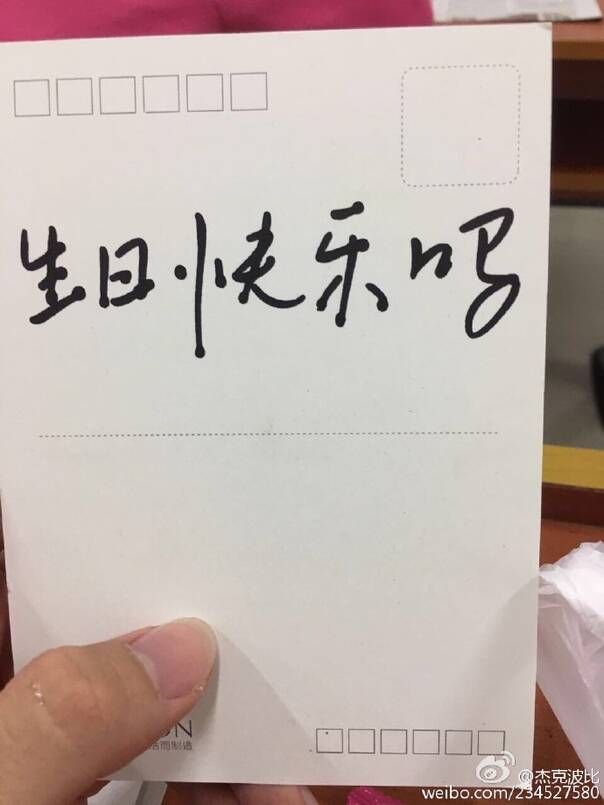 生日快乐吗
ON
而制造
@杰克波比
weibo.com/234527580